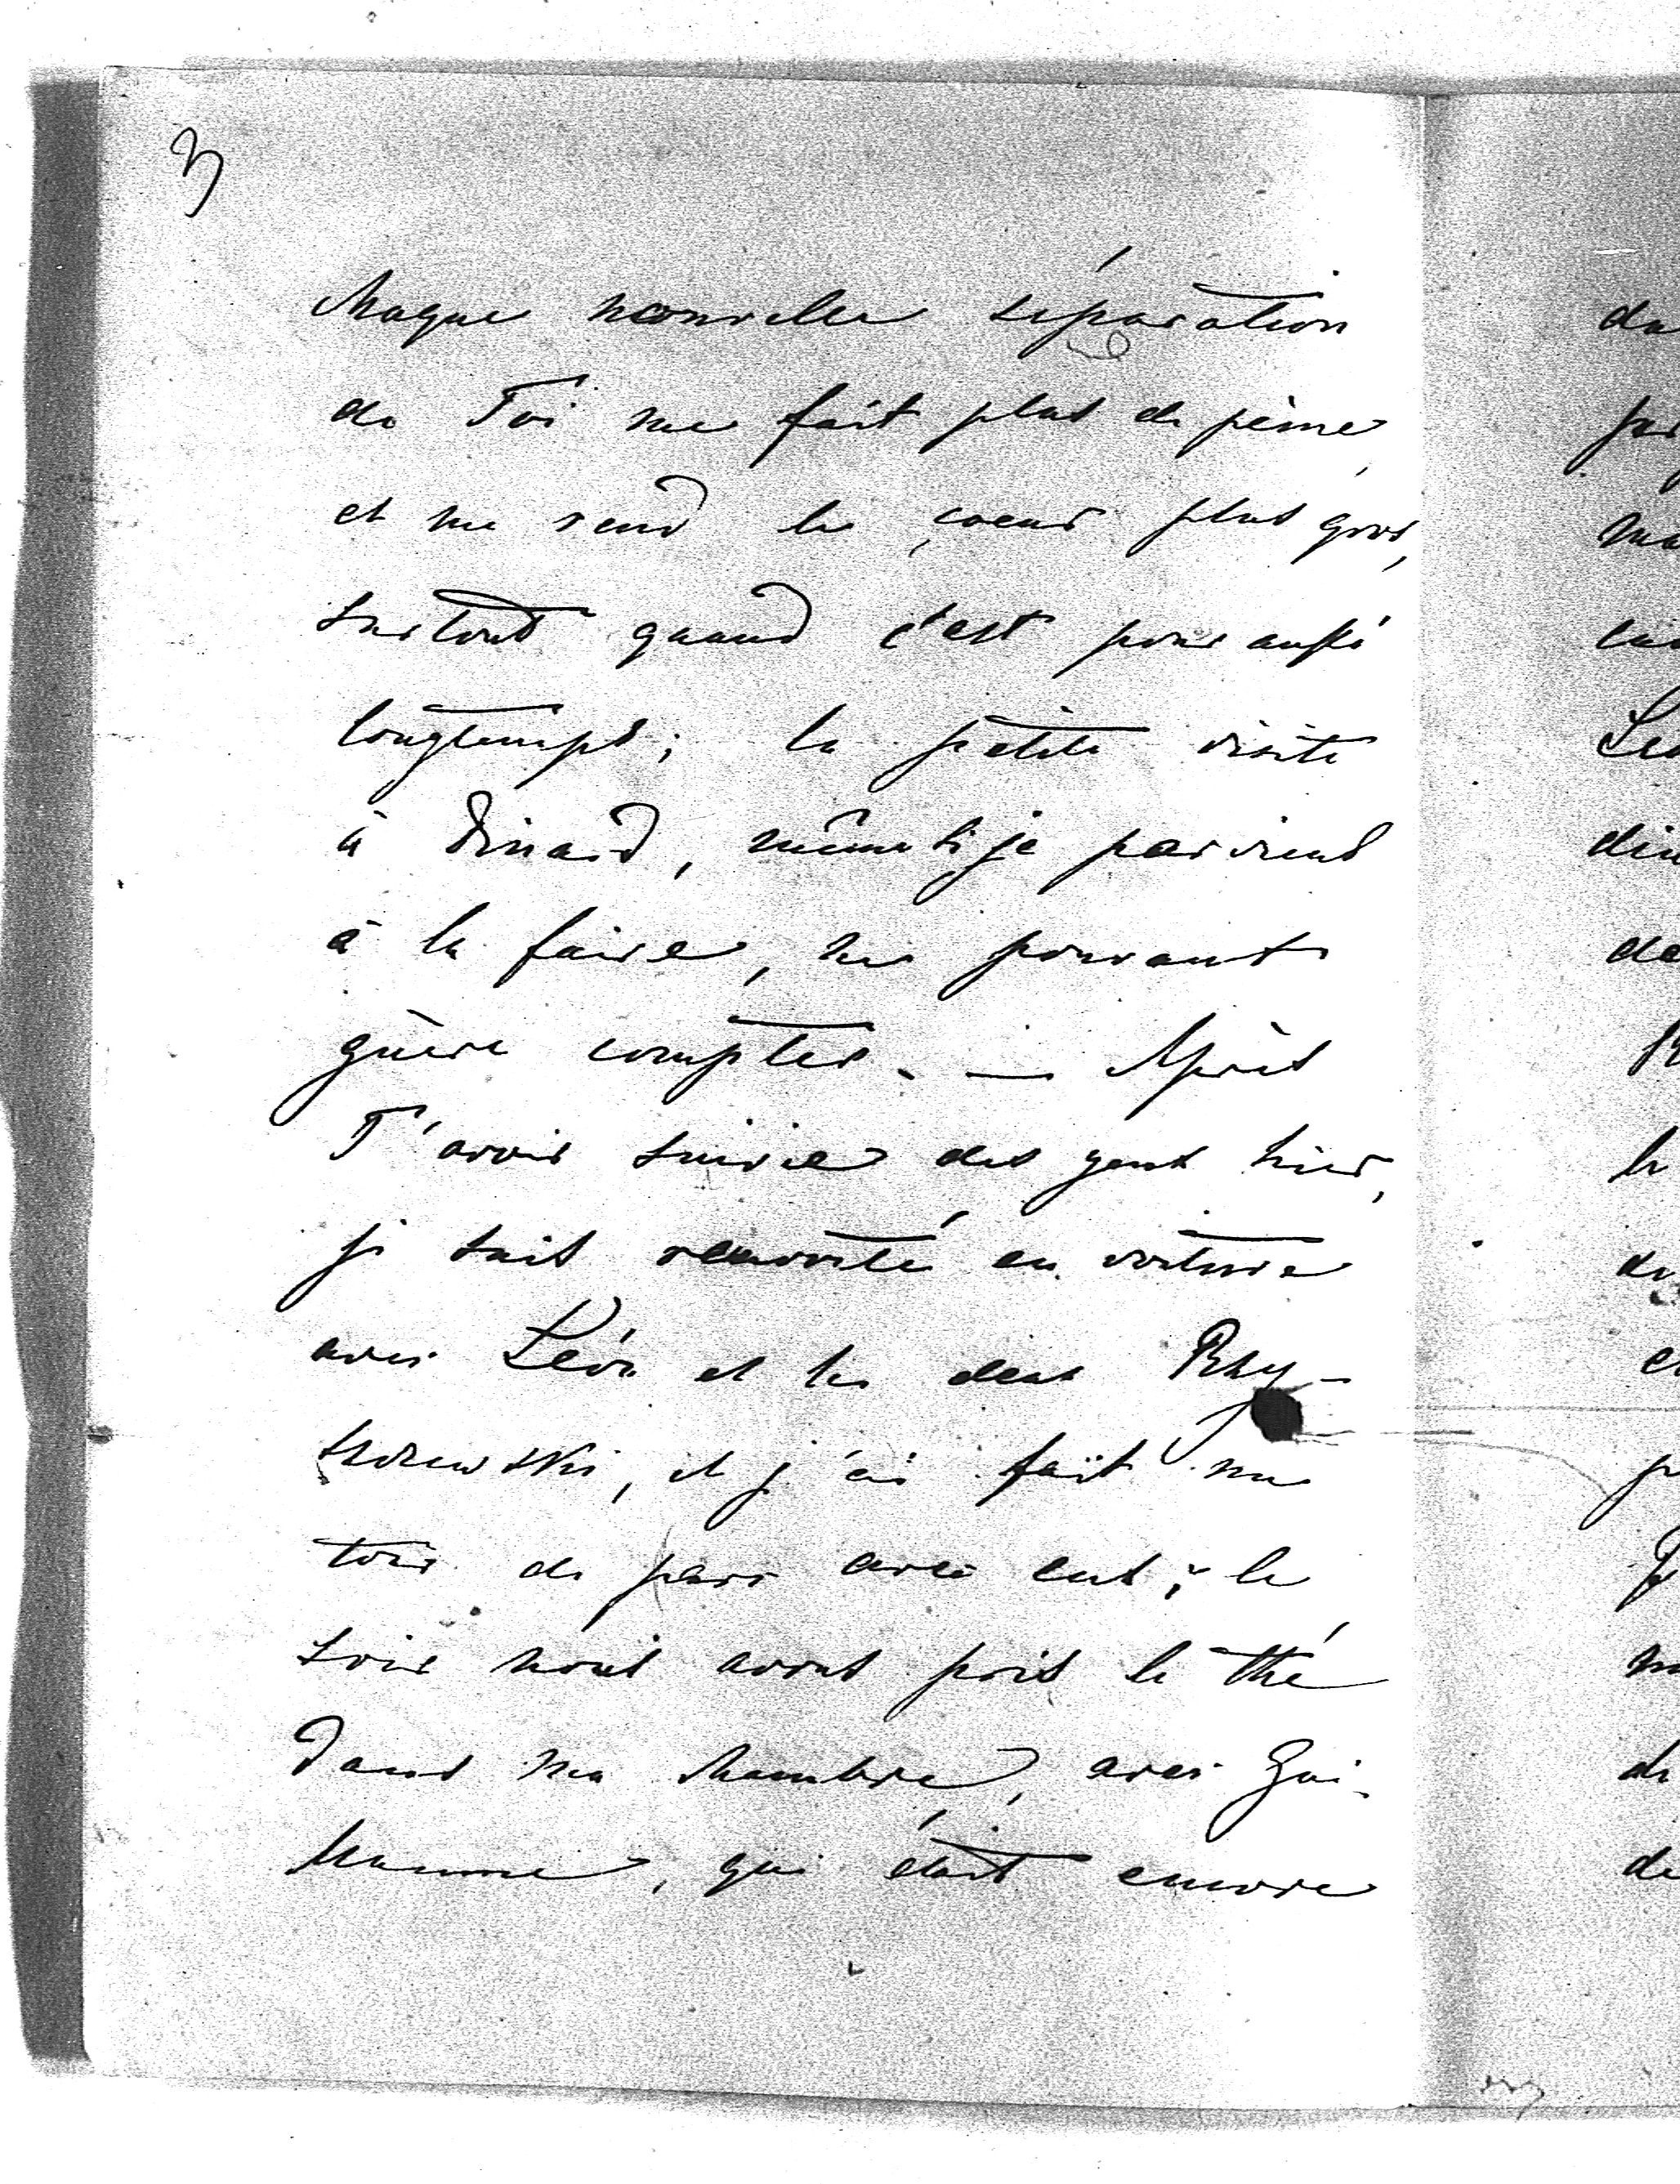 3
Chaque nouvelle séparation
de Toi me fait plus de peine,
et me rend le coeur plus gros,
surtout quand c'est pour aussi
longtemps; la petite visite
à Dinard, même si je parviens
à la faire, ne pouvant
guère compter. — Après
T'avoir suivie des yeux hier,
je suis remonté en voiture
avec Léon et les deux
et j'ai fait un
tour de parc avec eux; le
soir nous avons pris le thé
dans ma chambre, avec Gui-
llaume, qui était encore